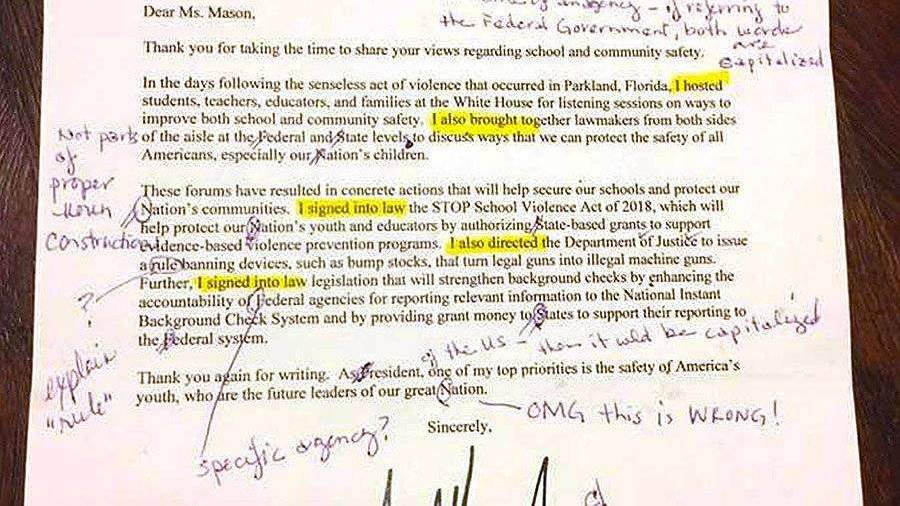 Dear Ms. Mason,
agency - if referring to
the Federal Government, both words
are
capitalized
Thank you for taking the time to share your views regarding school and community safety.
In the days following the senseless act of violence that occurred in Parkland, Florida, I hosted
students, teachers, educators, and families at the White House for listening sessions on ways to
improve both school and community safety. I also brought together lawmakers from both sides
of the aisle at the Federal and State levels to discuss ways that we can protect the safety of all
Americans, especially our Nation's children.
Not parts
of
proper
noun
construction
These forums have resulted in concrete actions that will help secure our schools and protect our
Nation's communities. I signed into law the STOP School Violence Act of 2018, which will
help protect our Nation's youth and educators by authorizing State-based grants to support
evidence-based violence prevention programs. I also directed the Department of Justice to issue
a rule banning devices, such as bump stocks, that turn legal guns into illegal machine guns.
Further, I signed into law legislation that will strengthen background checks by enhancing the
accountability of Federal agencies for reporting relevant information to the National Instant
Background Check System and by providing grant money to States to support their reporting to
the Federal system.
?
explain
"rule"
of the US - then it would be capitalized
Thank you again for writing. As President, one of my top priorities is the safety of America's
youth, who are the future leaders of our great Nation.
OMG this is WRONG!
Sincerely,
specific agency?